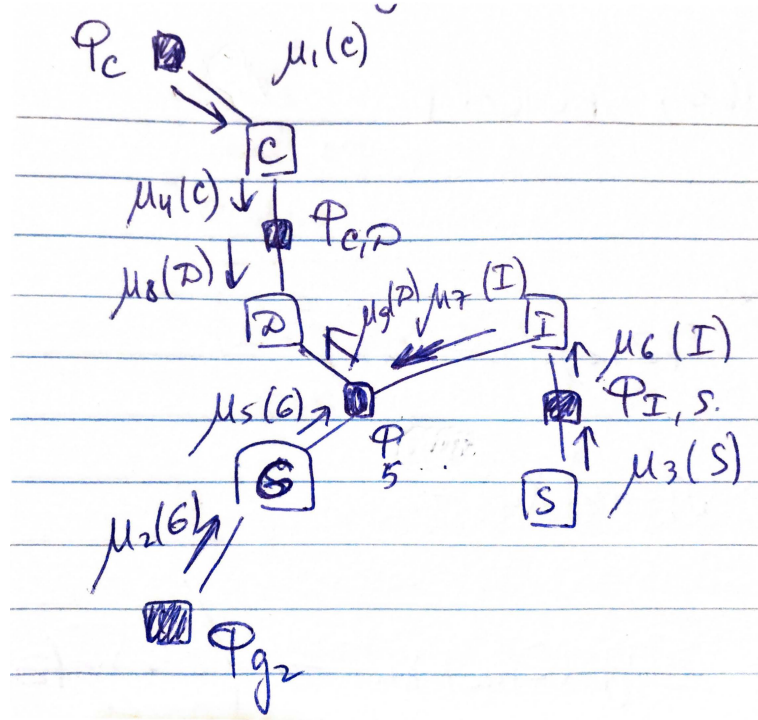 φ_C μ₁(C)
C
μ₄(C)
φ_C,D
μ₈(D)
D
μ₉(D) μ₇(I)
I
μ₆(I)
φ_I,S.
μ₅(G)
φ_5...
G
S
μ₃(S)
μ₂(G)
φ_g₂